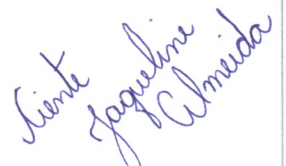 Ciente
Jaqueline
Almeida